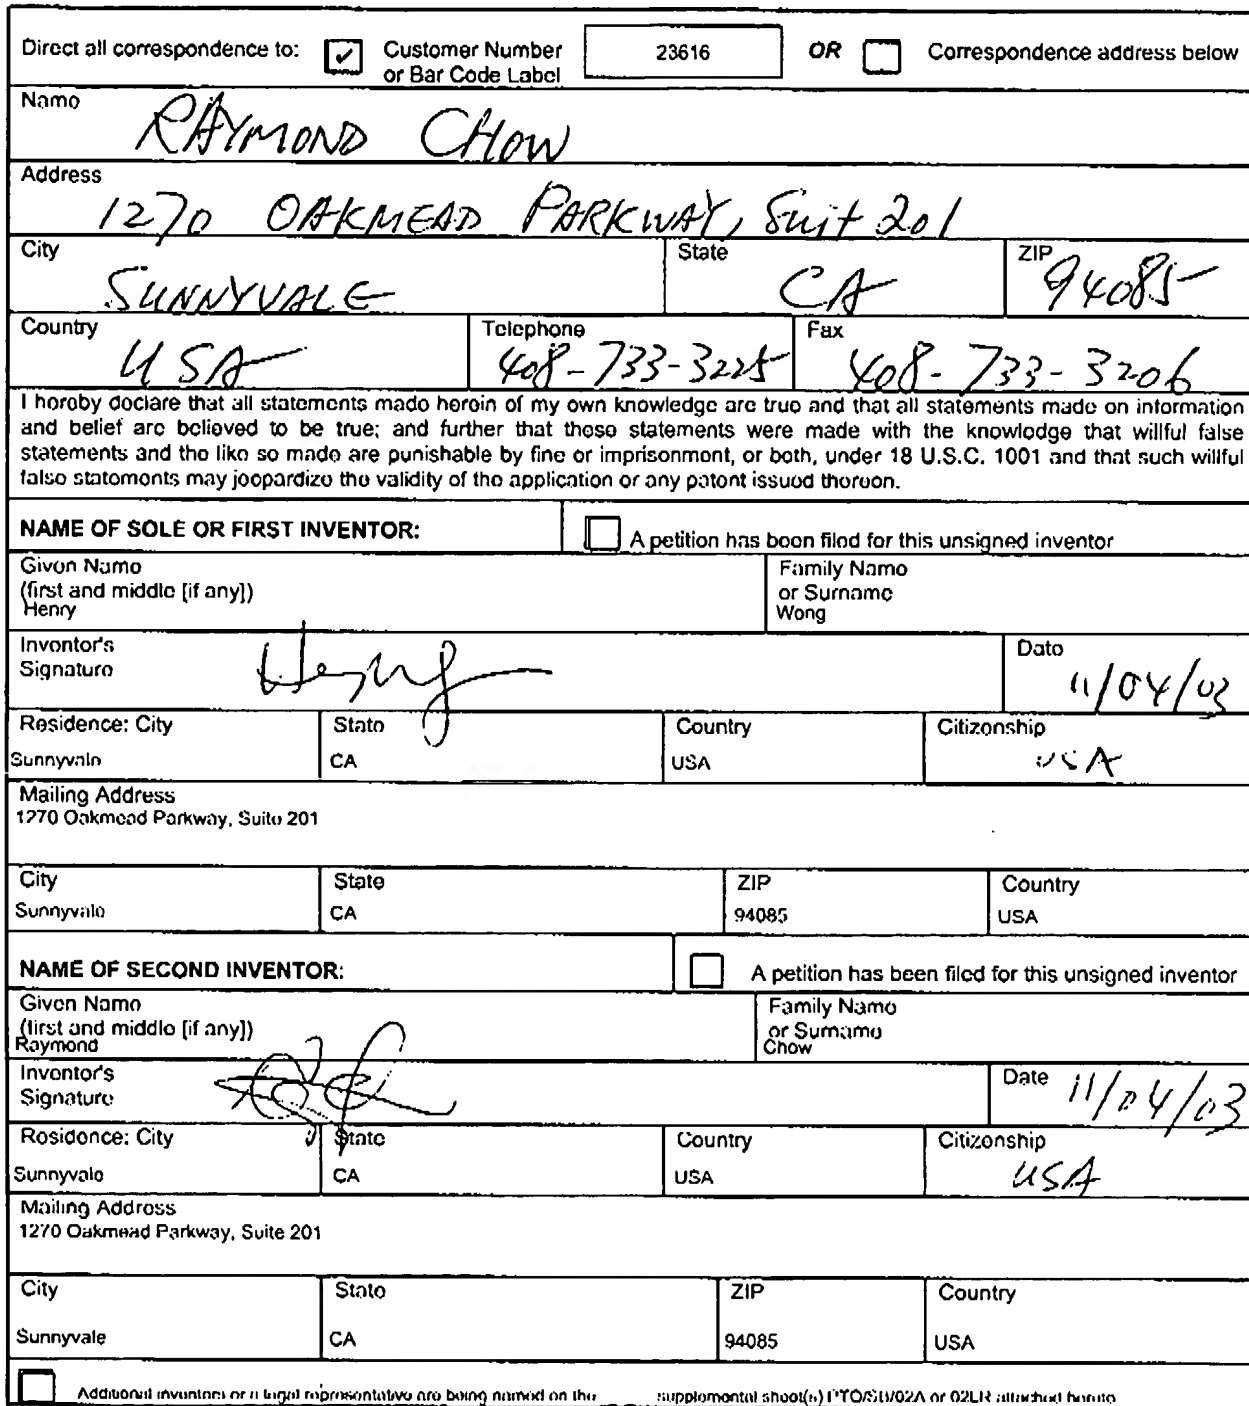 Direct all correspondence to: ✓ Customer Number or Bar Code Label 23616 OR Correspondence address below
Name
RAYMOND CHOW
Address
1270 OAKMEAD PARKWAY, Suit 201
City State ZIP
SUNNYVALE CA 94085
Country Telephone Fax
USA 408-733-3225 408-733-3206
I hereby declare that all statements made herein of my own knowledge are true and that all statements made on information
and belief are believed to be true; and further that these statements were made with the knowledge that willful false
statements and the like so made are punishable by fine or imprisonment, or both, under 18 U.S.C. 1001 and that such willful
false statements may jeopardize the validity of the application or any patent issued thereon.
NAME OF SOLE OR FIRST INVENTOR: A petition has been filed for this unsigned inventor
Given Name Family Name
(first and middle [if any]) or Surname
Henry Wong
Inventor's Date
Signature 11/04/03
Residence: City State Country Citizenship
Sunnyvale CA USA USA
Mailing Address
1270 Oakmead Parkway, Suite 201
City State ZIP Country
Sunnyvale CA 94085 USA
NAME OF SECOND INVENTOR: A petition has been filed for this unsigned inventor
Given Name Family Name
(first and middle [if any]) or Surname
Raymond Chow
Inventor's Date 11/04/03
Signature
Residence: City State Country Citizenship
Sunnyvale CA USA USA
Mailing Address
1270 Oakmead Parkway, Suite 201
City State ZIP Country
Sunnyvale CA 94085 USA
Additional inventors or a legal representative are being named on the supplemental sheet(s) PTO/SB/02A or 02LR attached hereto